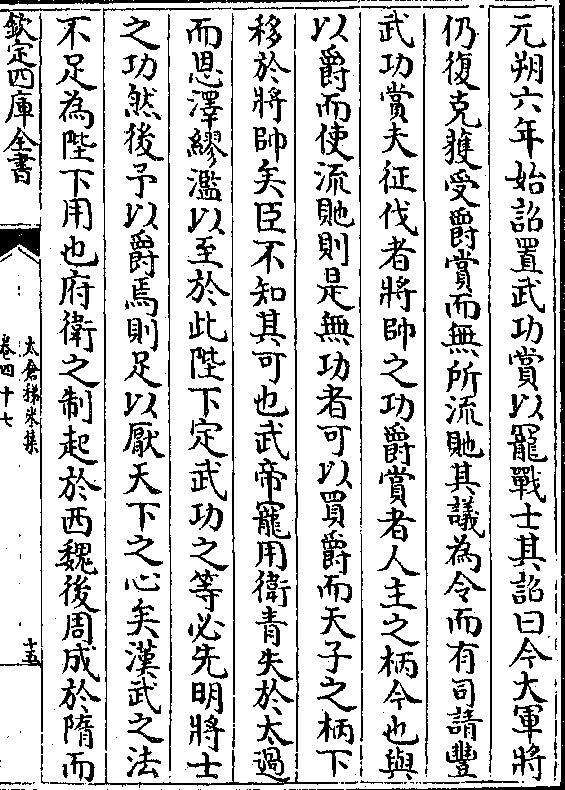 元朔六年始詔置武功賞以寵戰士其詔曰今大軍將
仍復克獲受爵賞而無所流貤其議為令而有司請豐
武功賞夫征伐者將帥之功爵賞者人主之柄今也與
以爵而使流貤則是無功者可以買爵而天子之柄下
移於將帥矣臣不知其可也武帝寵用衛青失於太過
而恩澤繆濫以至於此陛下定武功之等必先明將士
之功然後予以爵焉則足以厭天下之心矣漢武之法
不足為陛下用也府衛之制起於西魏後周成於隋而
欽定四庫全書
太倉稊米集
卷四十七
十五